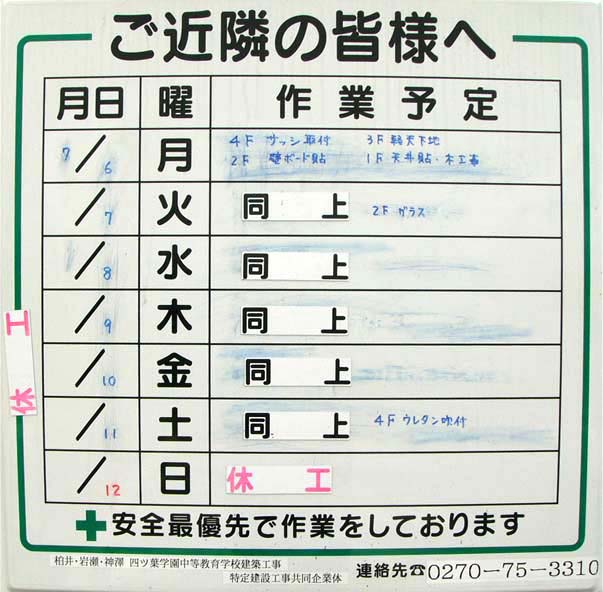 ご近隣の皆様へ
月日 曜 作業予定
7/6 月 4F サッシ取付 3F 軽天下地
2F 壁ボード貼 1F 天井貼・木工事
/7 火 同上 2F ガラス
/8 水 同上
/9 木 同上
/10 金 同上
/11 土 同上 4F ウレタン吹付
/12 日 休工
休工
安全最優先で作業をしております
柏井・岩瀬・神澤 四ツ葉学園中等教育学校建築工事
特定建設工事共同企業体
連絡先☎0270-75-3310